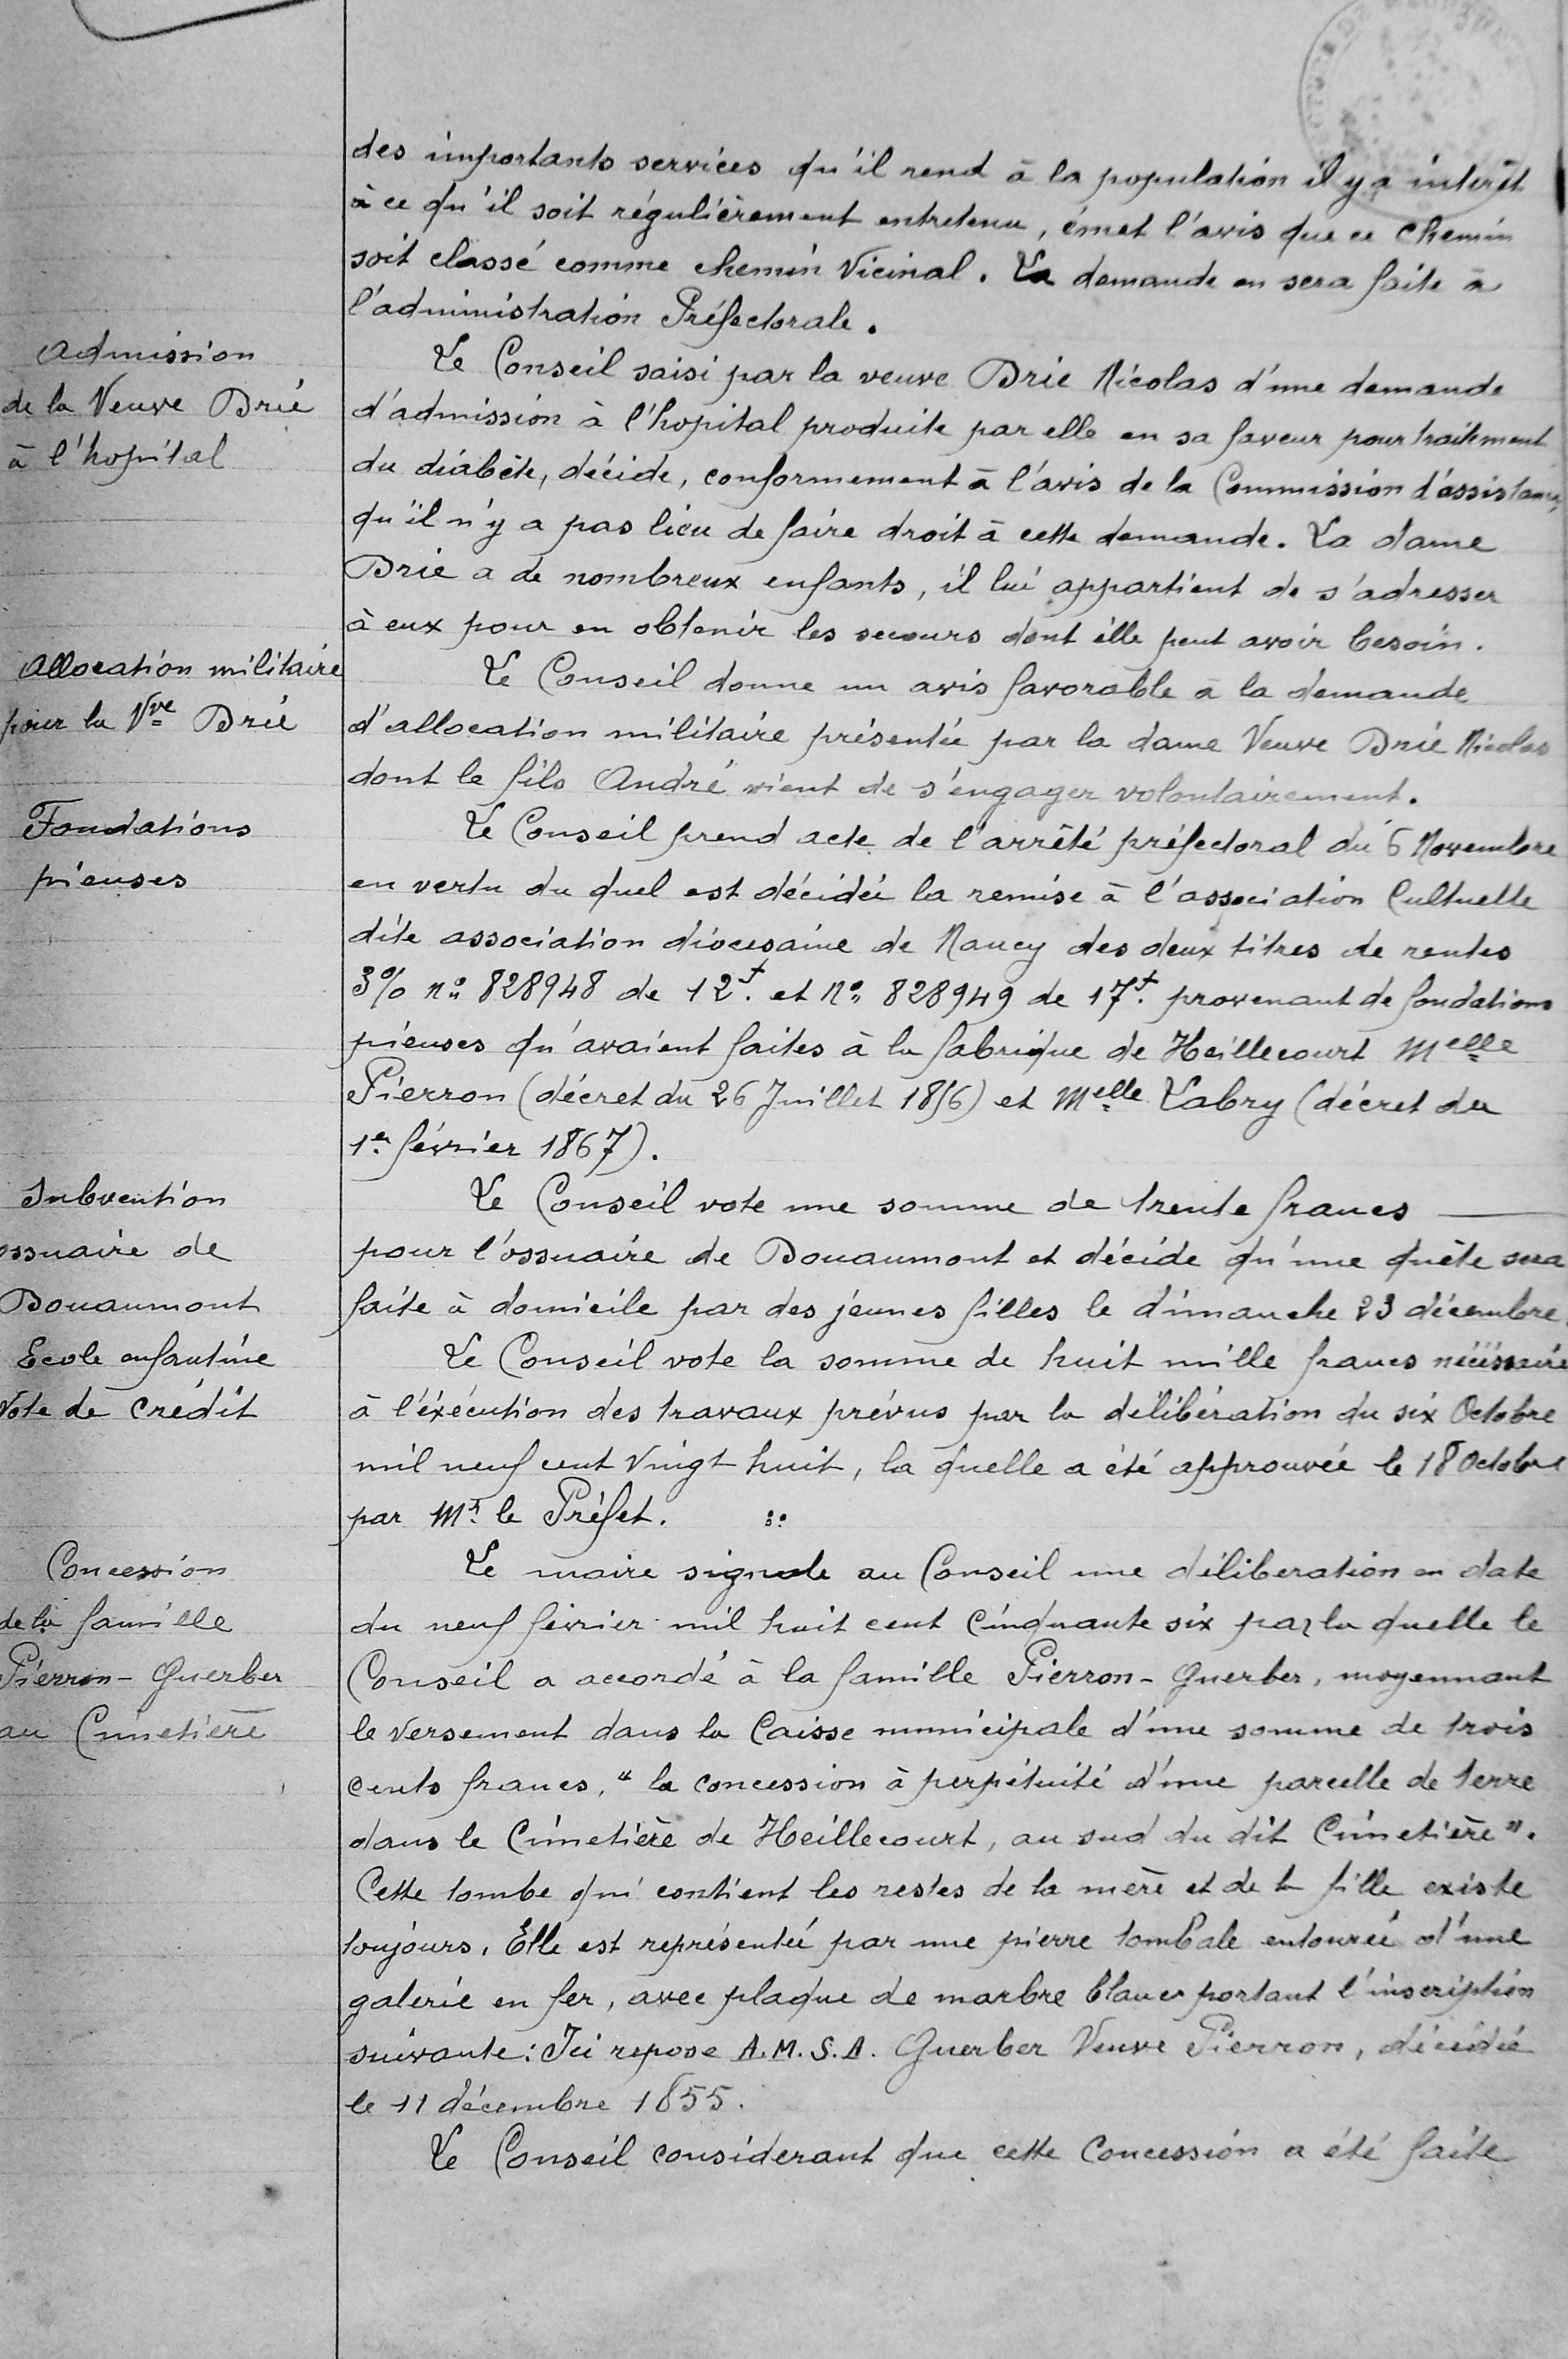 des importants services qu'il rend à la population il y a intérêt
à ce qu'il soit régulièrement entretenu, émet l'avis que ce chemin
soit classé comme chemin Vicinal. La demande en sera faite à
l'administration Préfectorale.
Admission
de la Veuve Brié
à l'hopital
Le Conseil saisi par la veuve Brié Nicolas d'une demande
d'admission à l'hopital produite par elle en sa faveur pour traitement
du diabète, décide, conformement à l'avis de la Commission d'assistance,
qu'il n'y a pas lieu de faire droit à cette demande. La dame
Brié a de nombreux enfants, il lui appartient de s'adresser
à eux pour en obtenir les secours dont elle peut avoir besoin.
Allocation militaire
pour la Vve Brié
Le Conseil donne un avis favorable à la demande
d'allocation militaire présentée par la dame Veuve Brié Nicolas
dont le fils André vient de s'engager volontairement.
Fondations
pieuses
Le Conseil prend acte de l'arrêté préfectoral du 6 Novembre
en vertu du quel est décidée la remise à l'association Cultuelle
dite association diocesaine de Nancy des deux titres de rentes
3% no 828948 de 12f. et No 828949 de 17f. provenant de fondations
pieuses qu'avaient faites à la fabrique de Heillecourt Melle
Pierron (décret du 26 Juillet 1856) et Melle Labry (décret du
1er février 1867).
Subvention
ossuaire de
Douaumont
Le Conseil vote une somme de trente francs
pour l'ossuaire de Douaumont et décide qu'une quète sera
faite à domicile par des jeunes filles le dimanche 23 décembre.
Ecole enfantine
Vote de crédit
Le Conseil vote la somme de huit mille francs nécessaire
à l'éxécution des travaux prévus par la délibération du six Octobre
mil neuf cent vingt huit, la quelle a été approuvée le 18 Octobre
par Mr. le Préfet.
Concession
de la famille
Pierron - Guerber
au Cimetière
Le maire signale au Conseil une déliberation en date
du neuf février mil huit cent Cinquante six par la quelle le
Conseil a accordé à la famille Pierron - Guerber, moyennant
le versement dans la Caisse municipale d'une somme de trois
cents francs, " la concession à perpétuité d'une parcelle de terre
dans le Cimetière de Heillecourt, au sud du dit Cimetière".
Cette tombe qui contient les restes de la mère et de la fille existe
toujours. Elle est représentée par une pierre tombale entourée d'une
galerie en fer, avec plaque de marbre blanc portant l'inscription
suivante : Ici repose A.M.S.A. Guerber Veuve Pierron, décédée
le 11 décembre 1855.
Le Conseil considerant que cette Concession a été faite